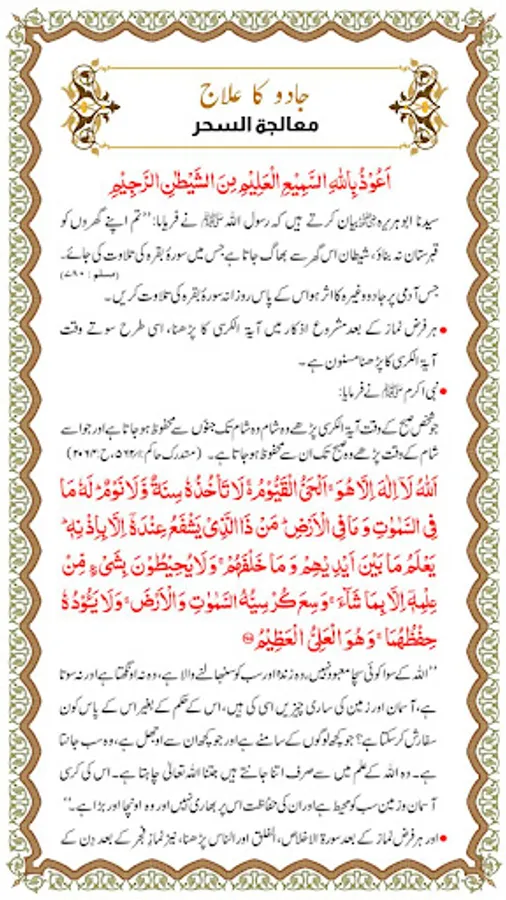 جادو کا علاج
معالجة السحر
اَعُوْذُ بِاللهِ السَّمِيْعِ الْعَلِيْمِ مِنَ الشَّيْطٰنِ الرَّجِيْمِ
سیدنا ابو ہریرہ ﷜ بیان کرتے ہیں کہ رسول اللہ ﷺ نے فرمایا: ”تم اپنے گھروں کو
قبرستان نہ بناؤ، شیطان اس گھر سے بھاگ جاتا ہے جس میں سورۂ بقرہ کی تلاوت کی جائے۔
(مسلم: ۷۸۰)
جس آدمی پر جادو وغیرہ کا اثر ہو اس کے پاس روزانہ سورۂ بقرہ کی تلاوت کریں۔
• ہر فرض نماز کے بعد مشروع اذکار میں آیۃ الکرسی کا پڑھنا، اسی طرح سوتے وقت
آیۃ الکرسی کا پڑھنا مسنون ہے۔
• نبی اکرم ﷺ نے فرمایا:
جو شخص صبح کے وقت آیۃ الکرسی پڑھے وہ شام تک جنوں سے محفوظ ہو جاتا ہے اور جو اسے
شام کے وقت پڑھے وہ صبح تک ان سے محفوظ ہو جاتا ہے۔ (مستدرک حاکم: ۵۶۲/۱، ح: ۲۰۶۴)
اَللّٰهُ لَاۤ اِلٰهَ اِلَّا هُوَ ۚ اَلْحَيُّ الْقَيُّوْمُ ۚ لَا تَاْخُذُهٗ سِنَةٌ وَّلَا نَوْمٌ ؕ لَهٗ مَا
فِي السَّمٰوٰتِ وَمَا فِي الْاَرْضِ ؕ مَنْ ذَا الَّذِيْ يَشْفَعُ عِنْدَهٗۤ اِلَّا بِاِذْنِهٖ ؕ
يَعْلَمُ مَا بَيْنَ اَيْدِيْهِمْ وَمَا خَلْفَهُمْ ۚ وَلَا يُحِيْطُوْنَ بِشَيْءٍ مِّنْ
عِلْمِهٖۤ اِلَّا بِمَا شَآءَ ۚ وَسِعَ كُرْسِيُّهُ السَّمٰوٰتِ وَالْاَرْضَ ۚ وَلَا يَئُوْدُهٗ
حِفْظُهُمَا ۚ وَهُوَ الْعَلِيُّ الْعَظِيْمُ
”اللہ کے سوا کوئی سچا معبود نہیں، وہ زندہ اور سب کو سنبھالنے والا ہے، وہ نہ اونگھتا ہے اور نہ سوتا
ہے، آسمان اور زمین کی ساری چیزیں اسی کی ہیں، اس کے حکم کے بغیر اس کے پاس کون
سفارش کر سکتا ہے؟ جو کچھ لوگوں کے سامنے ہے اور جو کچھ ان سے اوجھل ہے، وہ سب جانتا
ہے۔ وہ اللہ کے علم میں سے صرف اتنا جانتے ہیں جتنا اللہ تعالیٰ چاہتا ہے۔ اس کی کرسی
آسمان و زمین سب کو محیط ہے اور ان کی حفاظت اس پر بھاری نہیں اور وہ اونچا اور بڑا ہے۔“
• اور ہر فرض نماز کے بعد سورۃ الاخلاص، الفلق اور الناس پڑھنا، نیز نمازِ فجر کے بعد دن کے